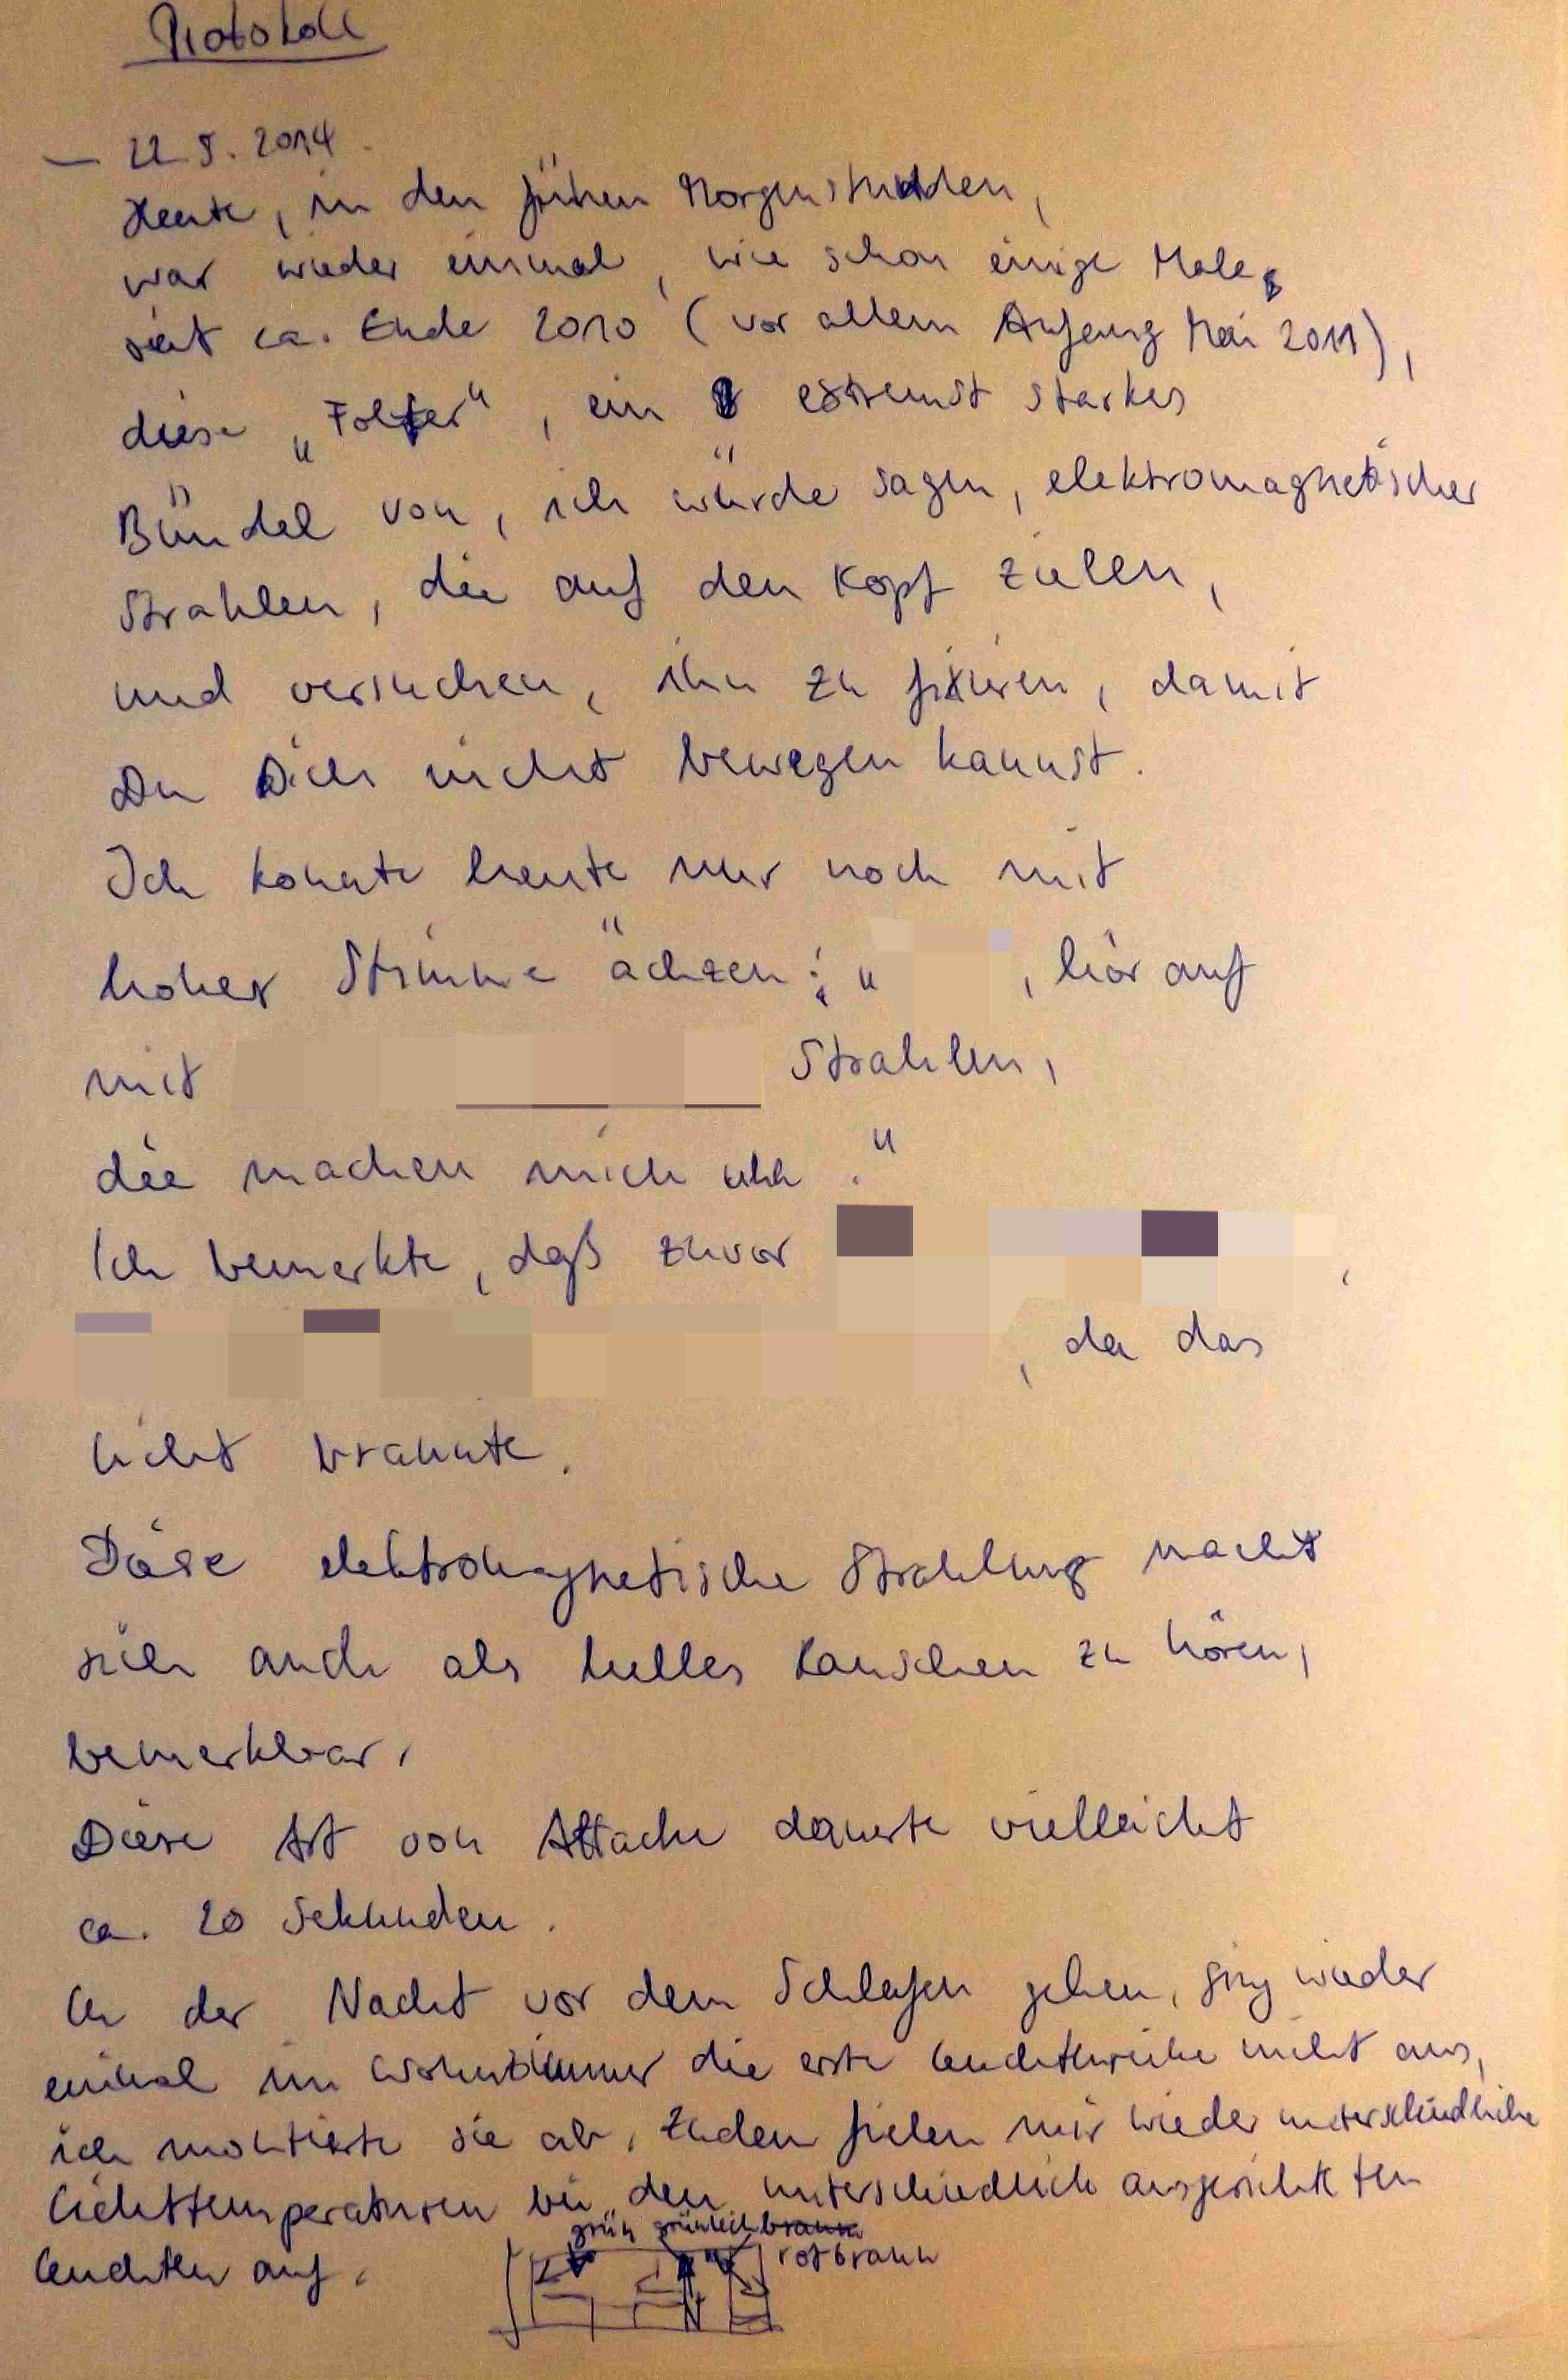 Protokoll
– 22.5.2014.
Heute, in den frühen Morgenstunden,
war wieder einmal, wie schon einige Male,
seit ca. Ende 2010 (vor allem Anfang Mai 2011),
diese „Folter", ein extremst starkes
Bündel von, ich würde sagen, elektromagnetischer
Strahlen, die auf den Kopf zielen,
und versuchen, ihn zu fixieren, damit
Du Dich nicht bewegen kannst.
Ich konnte heute nur noch mit
hoher Stimme ächzen: „ , hör auf
mit Strahlen,
die machen mich ."
Ich bemerkte, daß zuvor ,
, da das
Licht brannte.
Diese elektromagnetische Strahlung macht
sich auch als helles Rauschen zu hören,
bemerkbar.
Diese Art von Attacke dauerte vielleicht
ca. 20 Sekunden.
In der Nacht vor dem Schlafen gehen, ging wieder
einmal im Wohnzimmer die erste nicht aus,
ich montierte sie ab. Zudem fielen mir wieder unterschiedliche
Lichttemperaturen bei den unterschiedlich ausgerichteten
Leuchten auf.
grün grünlich braun
rotbraun